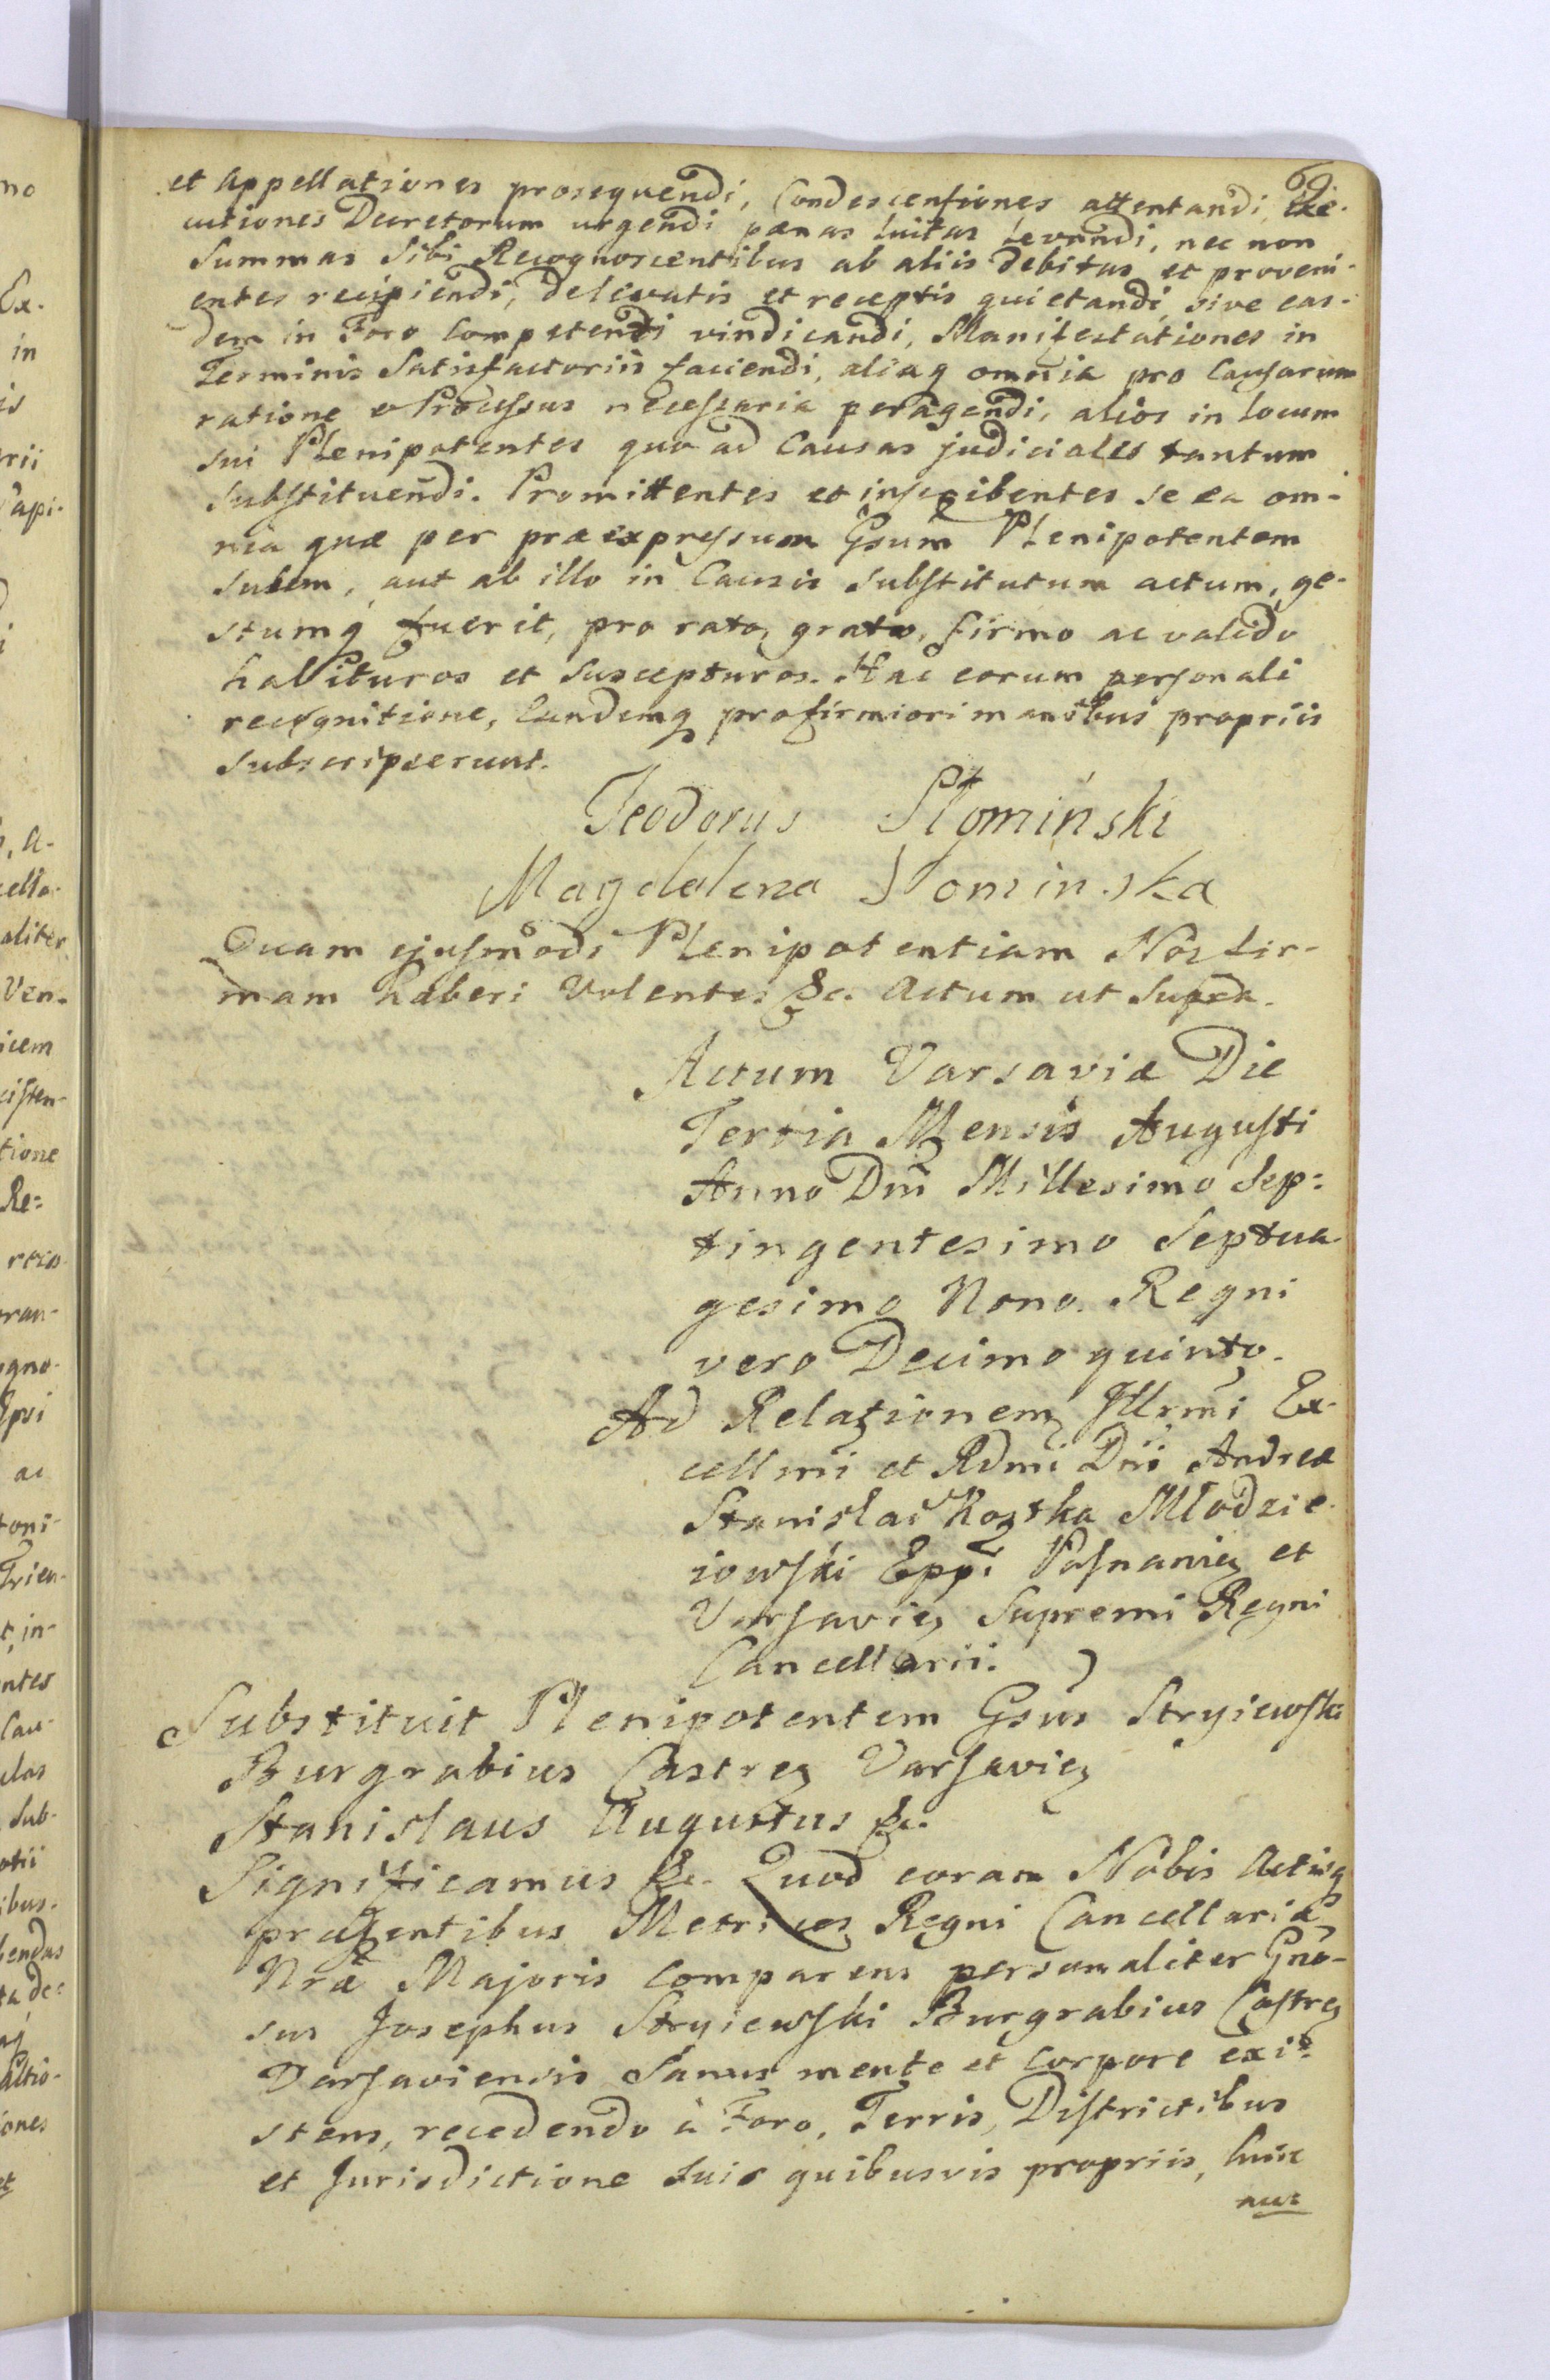 69.
et Appellationes prosequendi, Condescensiones attentandi, Exe-
cutiones Decretorum urgendi pænas luitas levandi, nec non
Summas Sibi Recognoscentibus ab aliis debitas et proveni-
entes recipiendi, de levatis et receptis quietandi, sive eas-
dem in Foro Competenti vindicandi, Manifestationes in
Terminis Satisfactoriis faciendi, aliaq omnia pro Causarum
ratione et Processus necessaria peragendi, alios in locum
sui Plenipotentes quo ad Causas judiciales tantum
substituendi. Promittentes et inscribentes se ea om-
nia quæ per præexpressum Gsum Plenipotentem
suum, aut ab illo in Causis substitutum actum, ge-
stumq fuerit, pro rato, grato, firmo ac valido
habituros et suscepturos. Hac eorum personali
recognitione, Eandemq pro firmiori manibus propriis
subscripserunt.
Teodorus Słomiński
Magdalena Slominska
Quam ejusmodi Plenipotentiam Nos fir-
mam haberi Volentes &c. Actum ut Supra.
Actum Varsaviæ Die
Tertia Mensis Augusti
Anno Dni Millesimo Sep-
tingentesimo Septua-
gesimo Nono. Regni
vero Decimo quinto.
Ad Relationem Illrmi Ex-
cellmi et Rdmi Dni Andreæ
Stanislai Kostka Młodzie-
iowski Eppi Posnanię et
Varsavię Supremi Regni
Cancellarii.
Substituit Plenipotentem Gsus Stryiewski
Burgrabius Castreę Varsavię
Stanislaus Augustus &c.
Significamus &c. Quod coram Nobis Actisq
præsentibus Metrices Regni Cancellariæ
Nræ Majoris Comparens personaliter Gno-
sus Josephus Stryiewski Burgrabius Castreę
Varsaviensis Sanus mente et Corpore exi-
stens, recedendo à Foro, Terris, Districtibus
et Jurisdictione Suis quibusvis propriis, huic